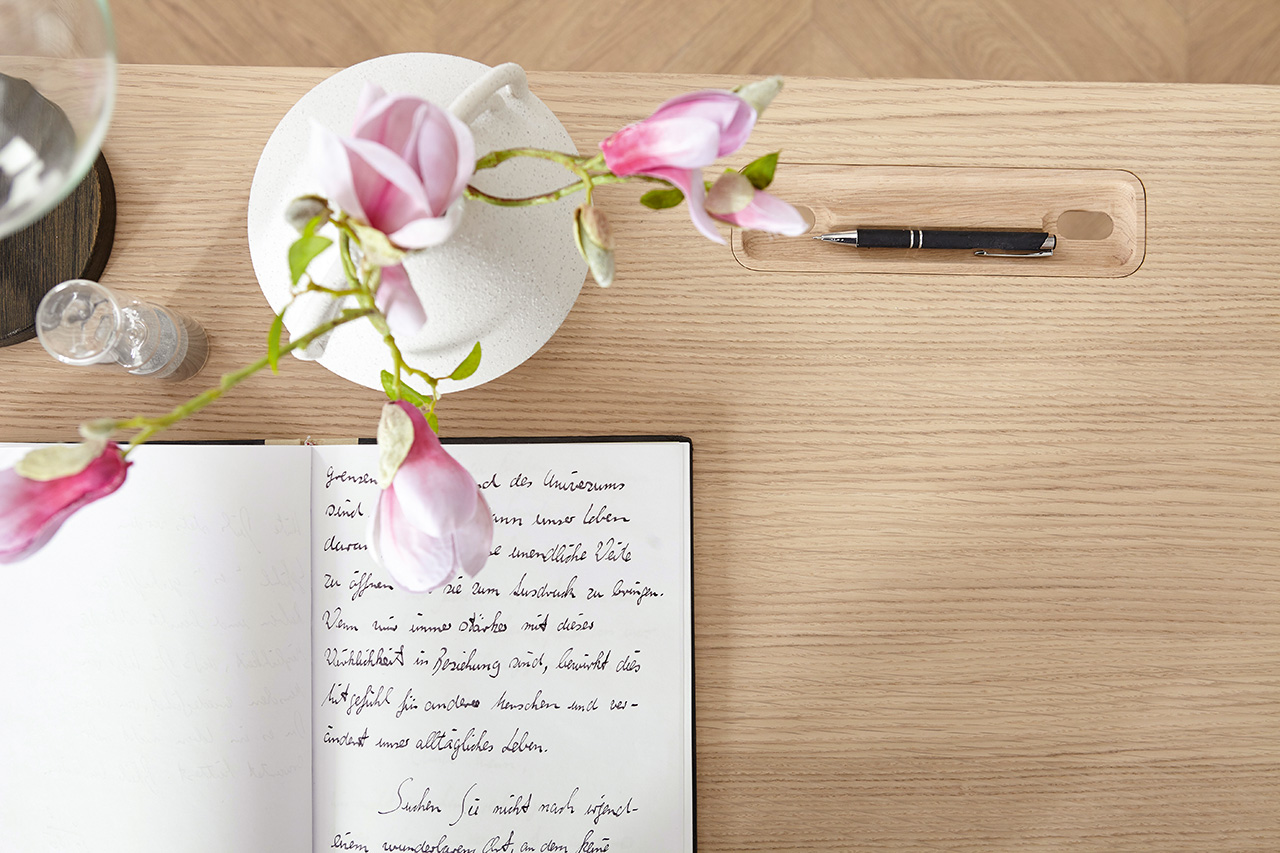 Grenzen d des Universums
sind ann unser Leben
darau e unendliche Weite
zu öffnen sie zum Ausdruck zu bringen.
Wenn wir immer stärker mit dieser
Wirklichkeit in Beziehung sind, bewirkt dies
Mitgefühl für andere Menschen und ver-
ändert unser alltägliches Leben.
Suchen Sie nicht nach irgend-
einem wunderbaren Ort, an dem keine